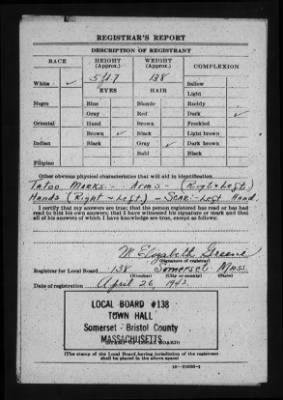 REGISTRAR'S REPORT
DESCRIPTION OF REGISTRANT
RACE HEIGHT (Approx.) WEIGHT (Approx.) COMPLEXION
White ✓ 5/ft 7 138 Sallow
Light
EYES HAIR
Negro Blue Blonde Ruddy
Gray Red Dark ✓
Oriental Hazel Brown Freckled
Brown ✓ Black Light brown
Indian Black Gray ✓ Dark brown
Bald Black
Filipino
Other obvious physical characteristics that will aid in identification.
Tatoo Marks - Arms - (Right + Left)
Hands (Right + Left) - Scar - Left Hand.
I certify that my answers are true; that the person registered has read or has had
read to him his own answers; that I have witnessed his signature or mark and that
all of his answers of which I have knowledge are true, except as follows:
M. Elizabeth Greene
(Signature of registrar)
Registrar for Local Board 138 Somerset Mass
(Number) (City or county) (State)
Date of registration April 26, 1942
LOCAL BOARD #138
TOWN HALL
Somerset Bristol County
MASSACHUSETTS
(STAMP OF LOCAL BOARD)
(The stamp of the Local Board having jurisdiction of the registrant
shall be placed in the above space)